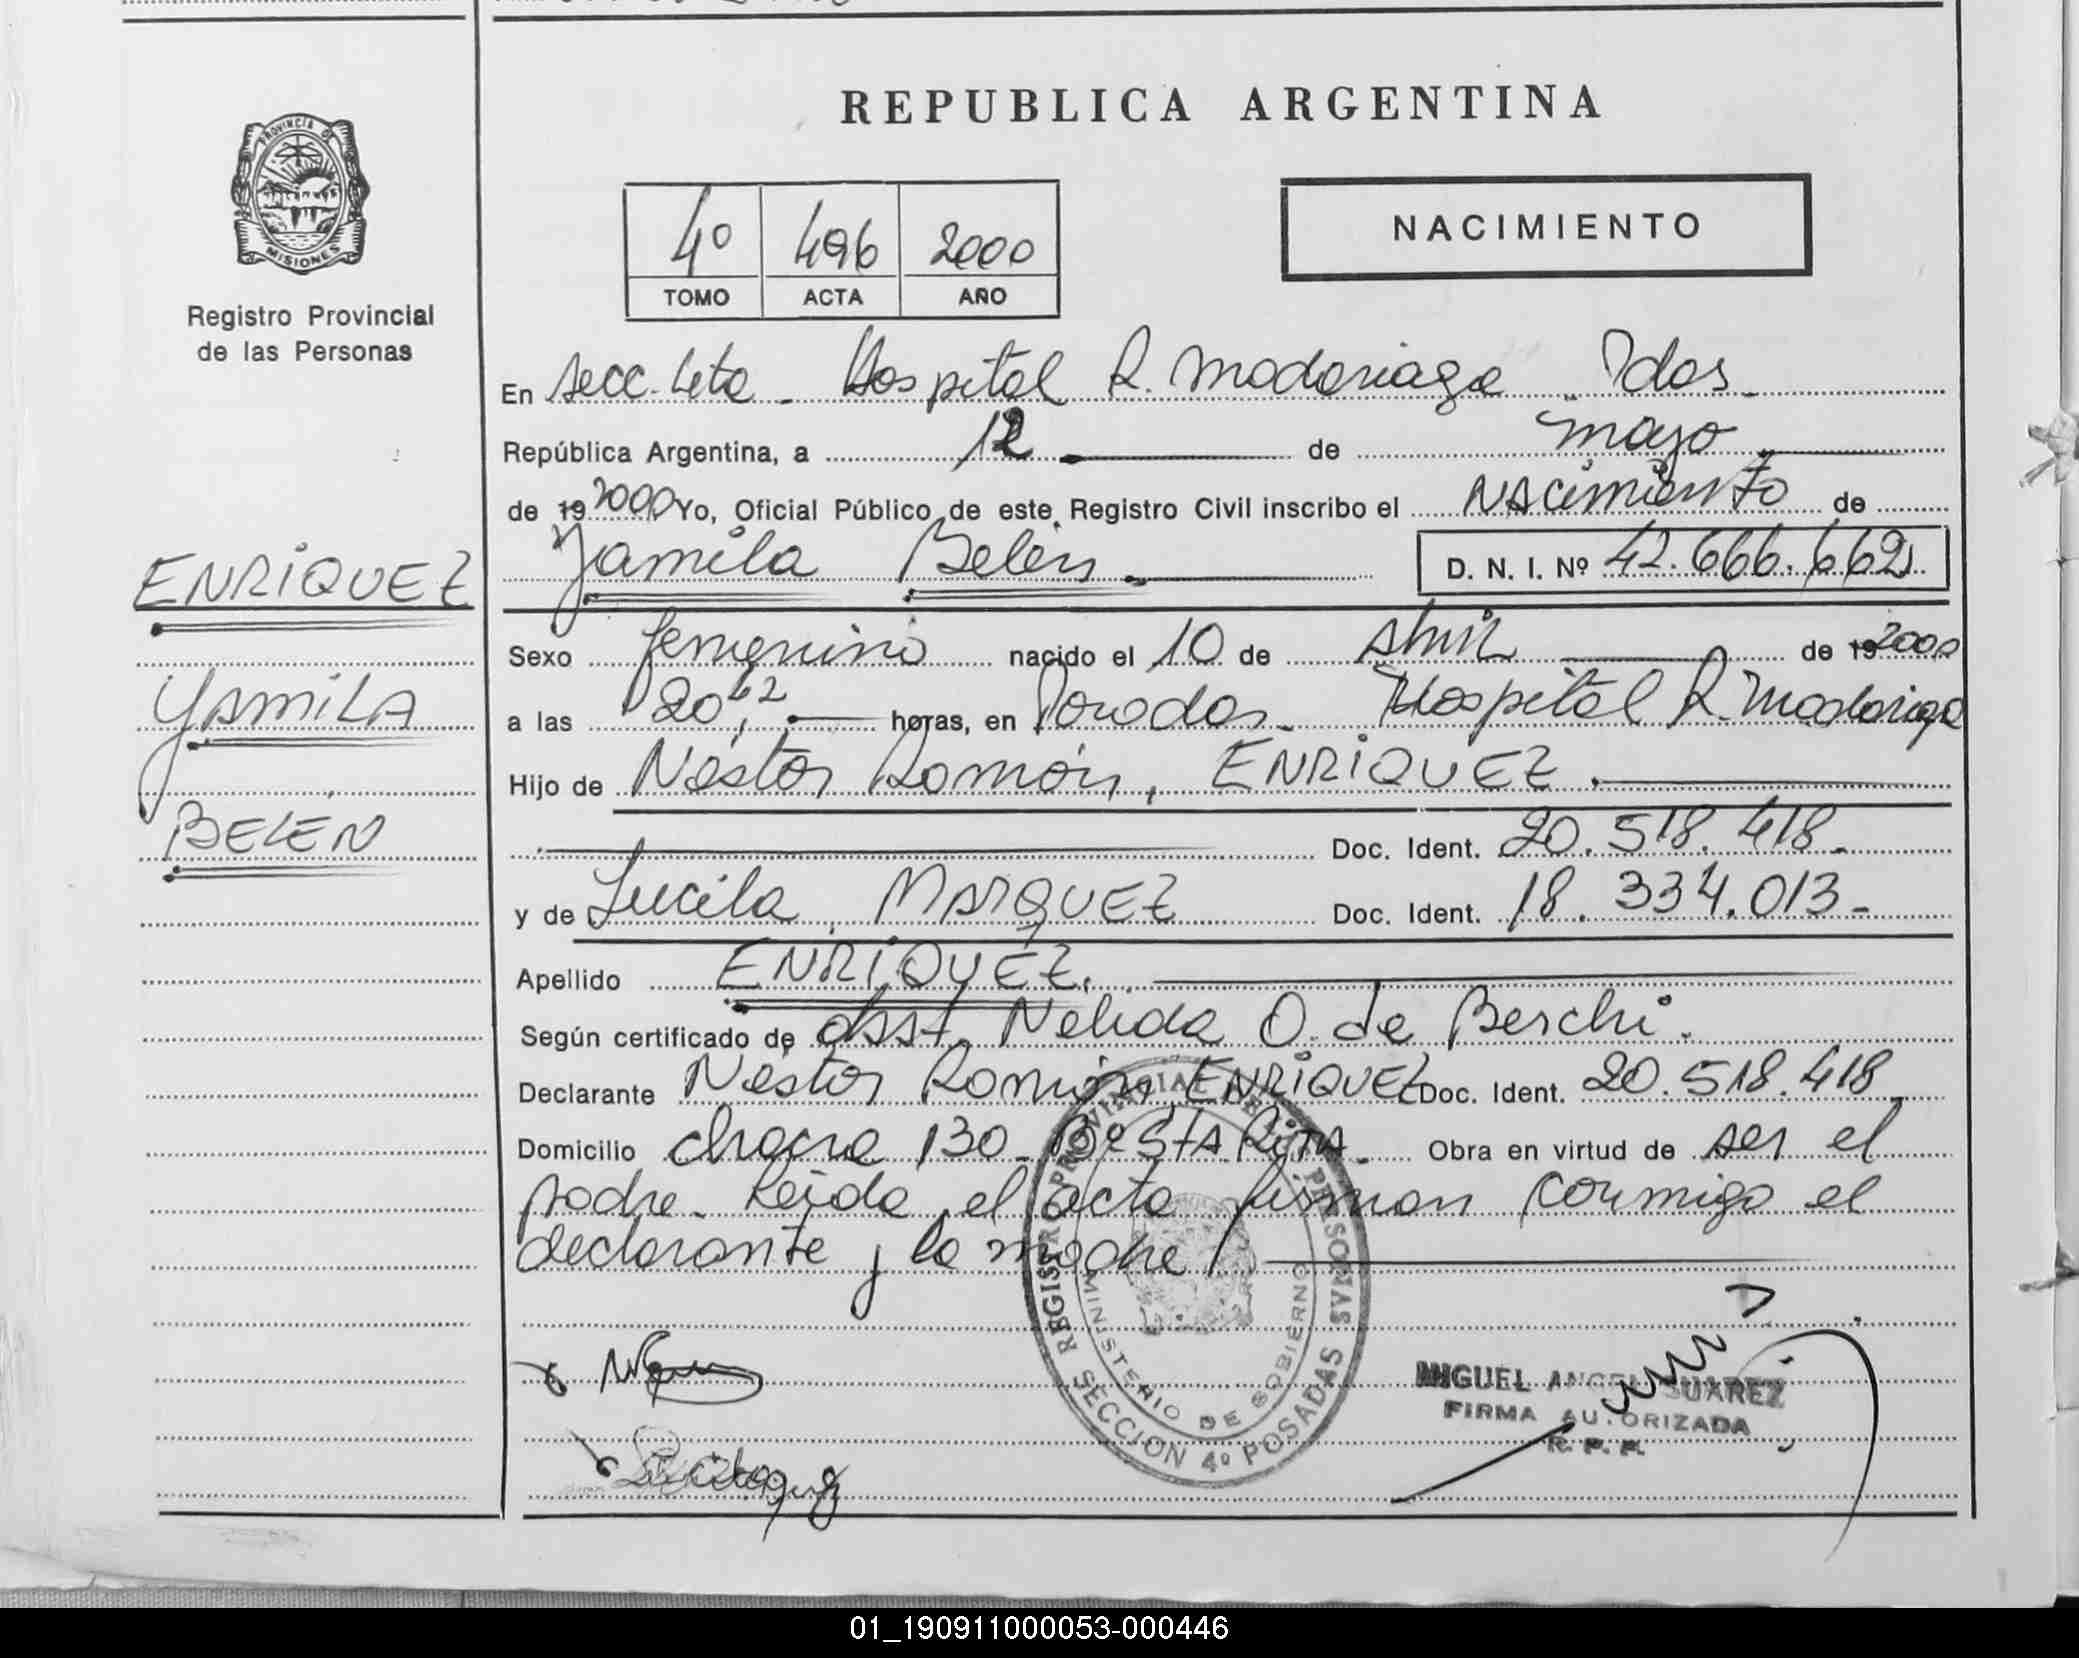 REPUBLICA ARGENTINA
PROVINCIA DE
MISIONES
Registro Provincial
de las Personas
4º 496 2000
TOMO ACTA AÑO
NACIMIENTO
En Secc. 4ta. Hospital R. Madariaga Pdas.
República Argentina, a 12 de mayo
de 19 2000 Yo, Oficial Público de este Registro Civil inscribo el NAcimiento de
Yamila Belén D. N. I. Nº 42.666.662
ENRIQUEZ
YAMILA
BELÉN
Sexo femenino nacido el 10 de Abril de 19 2000
a las 20,42 horas, en Posadas. Hospital R. Madariaga
Hijo de Néstor Ramón, ENRIQUEZ.
Doc. Ident. 20.518.418.
y de Lucila, MARQUEZ Doc. Ident. 18.334.013-
Apellido ENRIQUEZ.
Según certificado de obst. Nelida O. de Berchi.
Declarante Néstor Ramón ENRIQUEZ Doc. Ident. 20.518.418
Domicilio chacra 130 - Bº STA RITA. Obra en virtud de ser el
padre. Leída el acta firman conmigo el
declarante y la madre
REGISTRO PROVINCIAL DE LAS PERSONAS
MINISTERIO DE GOBIERNO
SECCION 4º POSADAS
MIGUEL ANGEL SUAREZ
FIRMA AUTORIZADA
R. P. P.
01_190911000053-000446